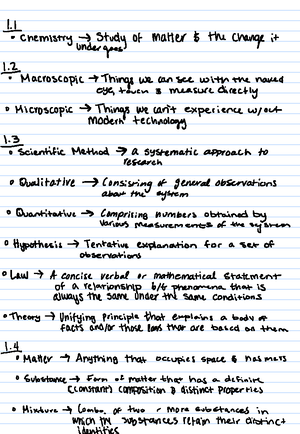 1.1
• Chemistry → Study of Matter & the change it
undergoes
1.2
• Macroscopic → Things we can see with the naked
eye, touch & measure directly
• Microscopic → Things we can't experience w/out
modern technology
1.3
• Scientific Method → a systematic approach to
research
• Qualitative → Consisting of general observations
about the system
• Quantitative → Comprising numbers obtained by
various measurements of the system
• Hypothesis → Tentative explanation for a set of
observations
• Law → A concise verbal or mathematical statement
of a relationship b/t phenomena that is
always the same under the same conditions
• Theory → Unifying principle that explains a body of
facts and/or those laws that are based on them
1.4
• Matter → Anything that occupies space & has mass
• Substance → Form of matter that has a definite
(constant) composition & distinct properties
• Mixture → Combo. of two r more substances in
which the substances retain their distinct
identities